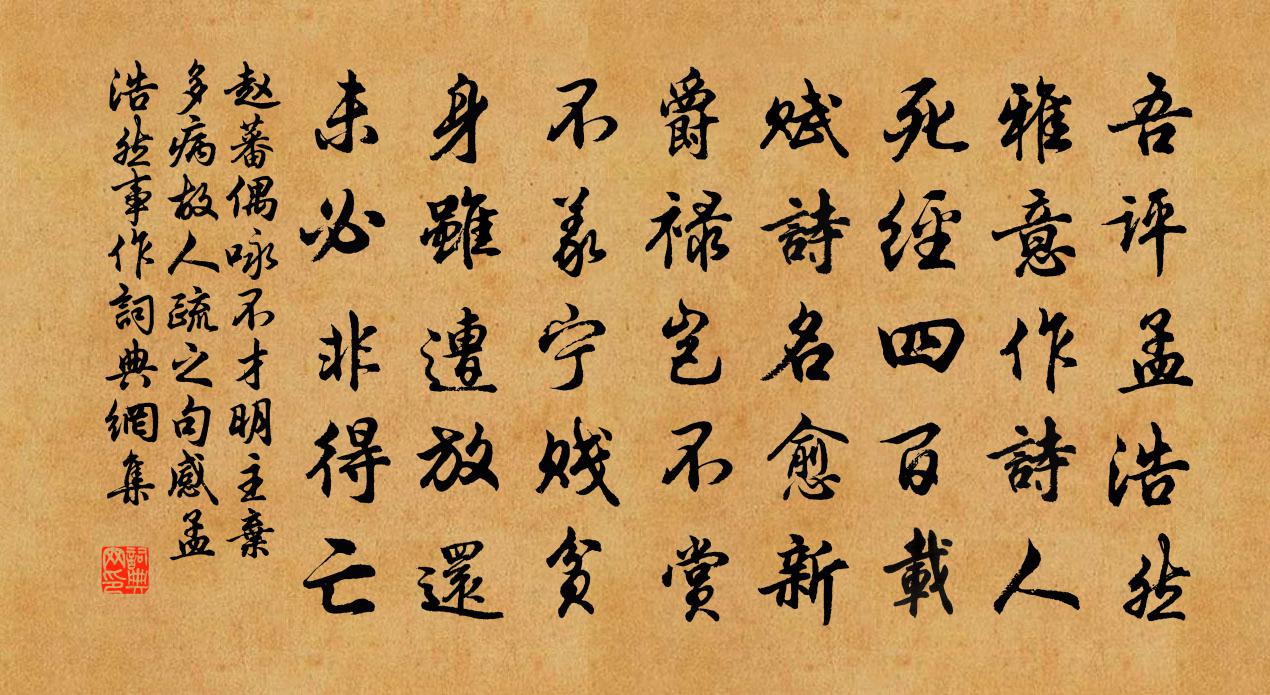 吾评孟浩然
雅意作詩人
死經四百載
赋詩名愈新
爵禄岂不赏
不義宁贱贫
身雖遭放還
未必非得亡
赵蕃偶咏不才明主棄
多病故人疏之句感孟
浩然事作詞典網集
詞典
网印